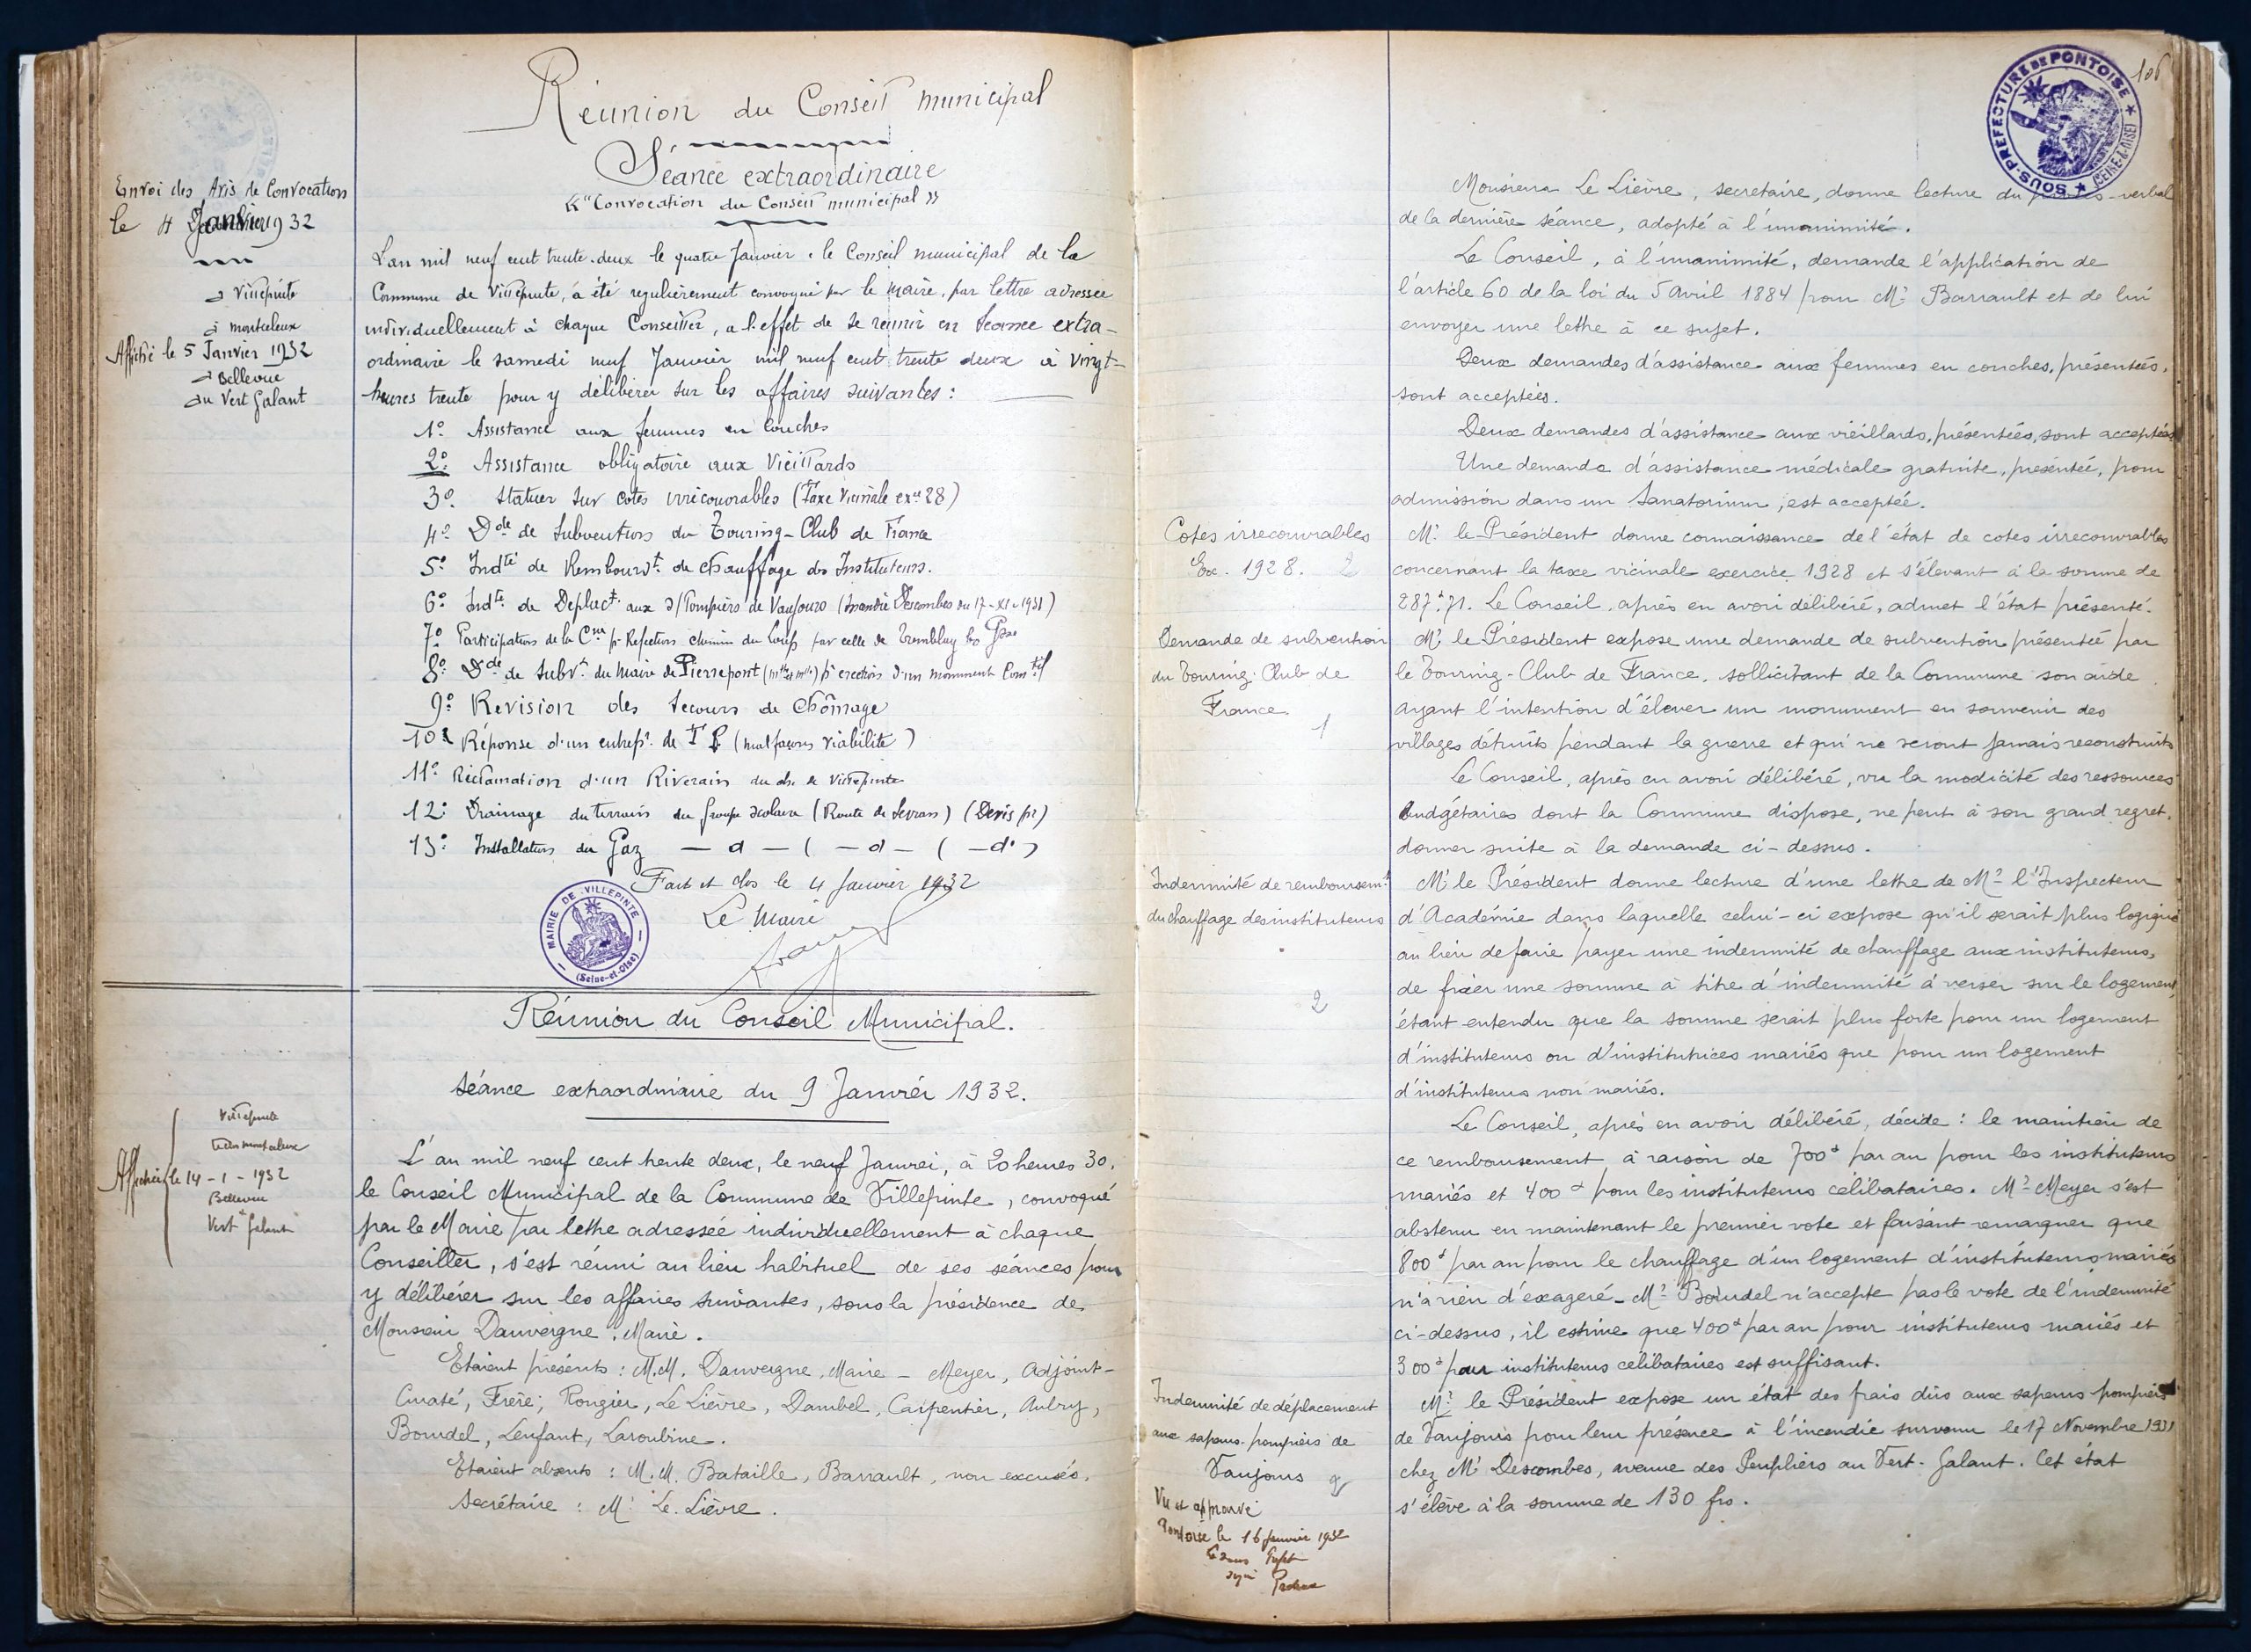 Réunion du Conseil municipal
Séance extraordinaire
« Convocation du Conseil municipal »
Envoi des Avis de Convocation
le 4 Janvier 1932
à Villepinte
à montceleux
Affiché le 5 Janvier 1932
à Bellevue
au Vert Galant
L'an mil neuf cent trente-deux le quatre Janvier, le Conseil municipal de la
Commune de Villepinte, a été regulièrement convoqué par le maire, par lettre adressée
individuellement à chaque Conseiller, a l'effet de se reunir en seance extra-
ordinaire le samedi neuf Janvier mil neuf cent trente deux à vingt-
heures trente pour y délibérer sur les affaires suivantes :
1º Assistance aux femmes en couches
2º Assistance obligatoire aux Vieillards
3º Statuer sur cotes irrécouvrables (Taxe Vicinale exce 28)
4º Dde de Subvention du Touring-Club de France
5º Indté de Rembourst de chauffage des Instituteurs.
6º Indté de Deplact aux s/Pompiers de Vaujours (Incendie Descombes du 17-XI-1931)
7º Participation de la Cne pr Refection chemin du Loup par celle de Tremblay les Gsse
8º Dde de Subvt du Maire de Pierrepont (Mthe et Mlle) pr erection d'un monument Comtif
9º Revision des Secours de Chômage
10º Réponse d'un entrepr de T P (malfaçons viabilité)
11º Réclamation d'un Riverain du ch. de Villepinte
12º Drainage du terrain du Groupe scolaire (Route de Sevran) (Devis pr)
13º Installation du Gaz — d — ( — d — ( — dº )
Fait et clos le 4 Janvier 1932
Le Maire
MAIRIE DE VILLEPINTE
(Seine-et-Oise)
Réunion du Conseil Municipal.
Séance extraordinaire du 9 Janvier 1932.
Villepinte
Montceleux
Affiché le 14-1-1932
Bellevue
Vert Galant
L'an mil neuf cent trente deux, le neuf Janvier, à 20 heures 30,
le Conseil Municipal de la Commune de Villepinte, convoqué
par le Maire par lettre adressée individuellement à chaque
Conseiller, s'est réuni au lieu habituel de ses séances pour
y délibérer sur les affaires suivantes, sous la présidence de
Monsieur Dauvergne, Maire.
Etaient présents : M.M. Dauvergne, Maire - Meyer, Adjoint -
Curaté, Frère, Rongier, Le Lièvre, Dambel, Carpentier, Aubry,
Bourdel, Lenfant, Laroubine.
Etaient absents : M.M. Bataille, Barrault, non excusés.
Secrétaire : Mr Le Lièvre.
106
SOUS-PREFECTURE DE PONTOISE
(SEINE-&-OISE)
Monsieur Le Lièvre, secretaire, donne lecture du procès-verbal
de la dernière séance, adopté à l'unanimité.
Le Conseil, à l'unanimité, demande l'application de
l'article 60 de la loi du 5 Avril 1884 pour Mr Barrault et de lui
envoyer une lettre à ce sujet.
Deux demandes d'assistance aux femmes en couches, présentées,
sont acceptées.
Deux demandes d'assistance aux vieillards, présentées, sont acceptées
Une demande d'assistance médicale gratuite, présentée, pour
admission dans un Sanatorium, est acceptée.
Cotes irrecouvrables
Ex. 1928. 2
Mr le Président donne connaissance de l'état de cotes irrecouvrables
concernant la taxe vicinale exercice 1928 et s'élevant à la somme de
287f,71. Le Conseil, après en avoir délibéré, admet l'état présenté.
Demande de subvention
du Touring-Club de
France
1
Mr le Président expose une demande de subvention présentée par
le Touring-Club de France, sollicitant de la Commune son aide
ayant l'intention d'élever un monument en souvenir des
villages détruits pendant la guerre et qui ne seront jamais reconstruits
Le Conseil, après en avoir délibéré, vu la modicité des ressources
budgétaires dont la Commune dispose, ne peut à son grand regret,
donner suite à la demande ci-dessus.
Indemnité de remboursemt
du chauffage des instituteurs
2
Mr le Président donne lecture d'une lettre de Mr l'Inspecteur
d'Académie dans laquelle celui-ci expose qu'il serait plus logique
au lieu de faire payer une indemnité de chauffage aux instituteurs,
de fixer une somme à titre d'indemnité à verser sur le logement,
étant entendu que la somme serait plus forte pour un logement
d'instituteurs ou d'institutrices mariés que pour un logement
d'instituteurs non mariés.
Le Conseil, après en avoir délibéré, décide : le maintien de
ce remboursement à raison de 700f par an pour les instituteurs
mariés et 400f pour les instituteurs célibataires. Mr Meyer s'est
abstenu en maintenant le premier vote et faisant remarquer que
800f par an pour le chauffage d'un logement d'instituteurs mariés
n'a rien d'exagéré - Mr Bourdel n'accepte pas le vote de l'indemnité
ci-dessus, il estime que 400f par an pour instituteurs mariés et
300f pour instituteurs célibataires est suffisant.
Indemnité de déplacement
aux sapeurs-pompiers de
Vaujours 2
Mr le Président expose un état des frais dûs aux sapeurs pompiers
de Vaujours pour leur présence à l'incendie survenu le 17 Novembre 1931
chez Mr Descombes, avenue des Peupliers au Vert-Galant. Cet état
s'élève à la somme de 130 frs.
Vu et approuvé
Pontoise le 16 Janvier 1932
Le Sous Préfet
signé